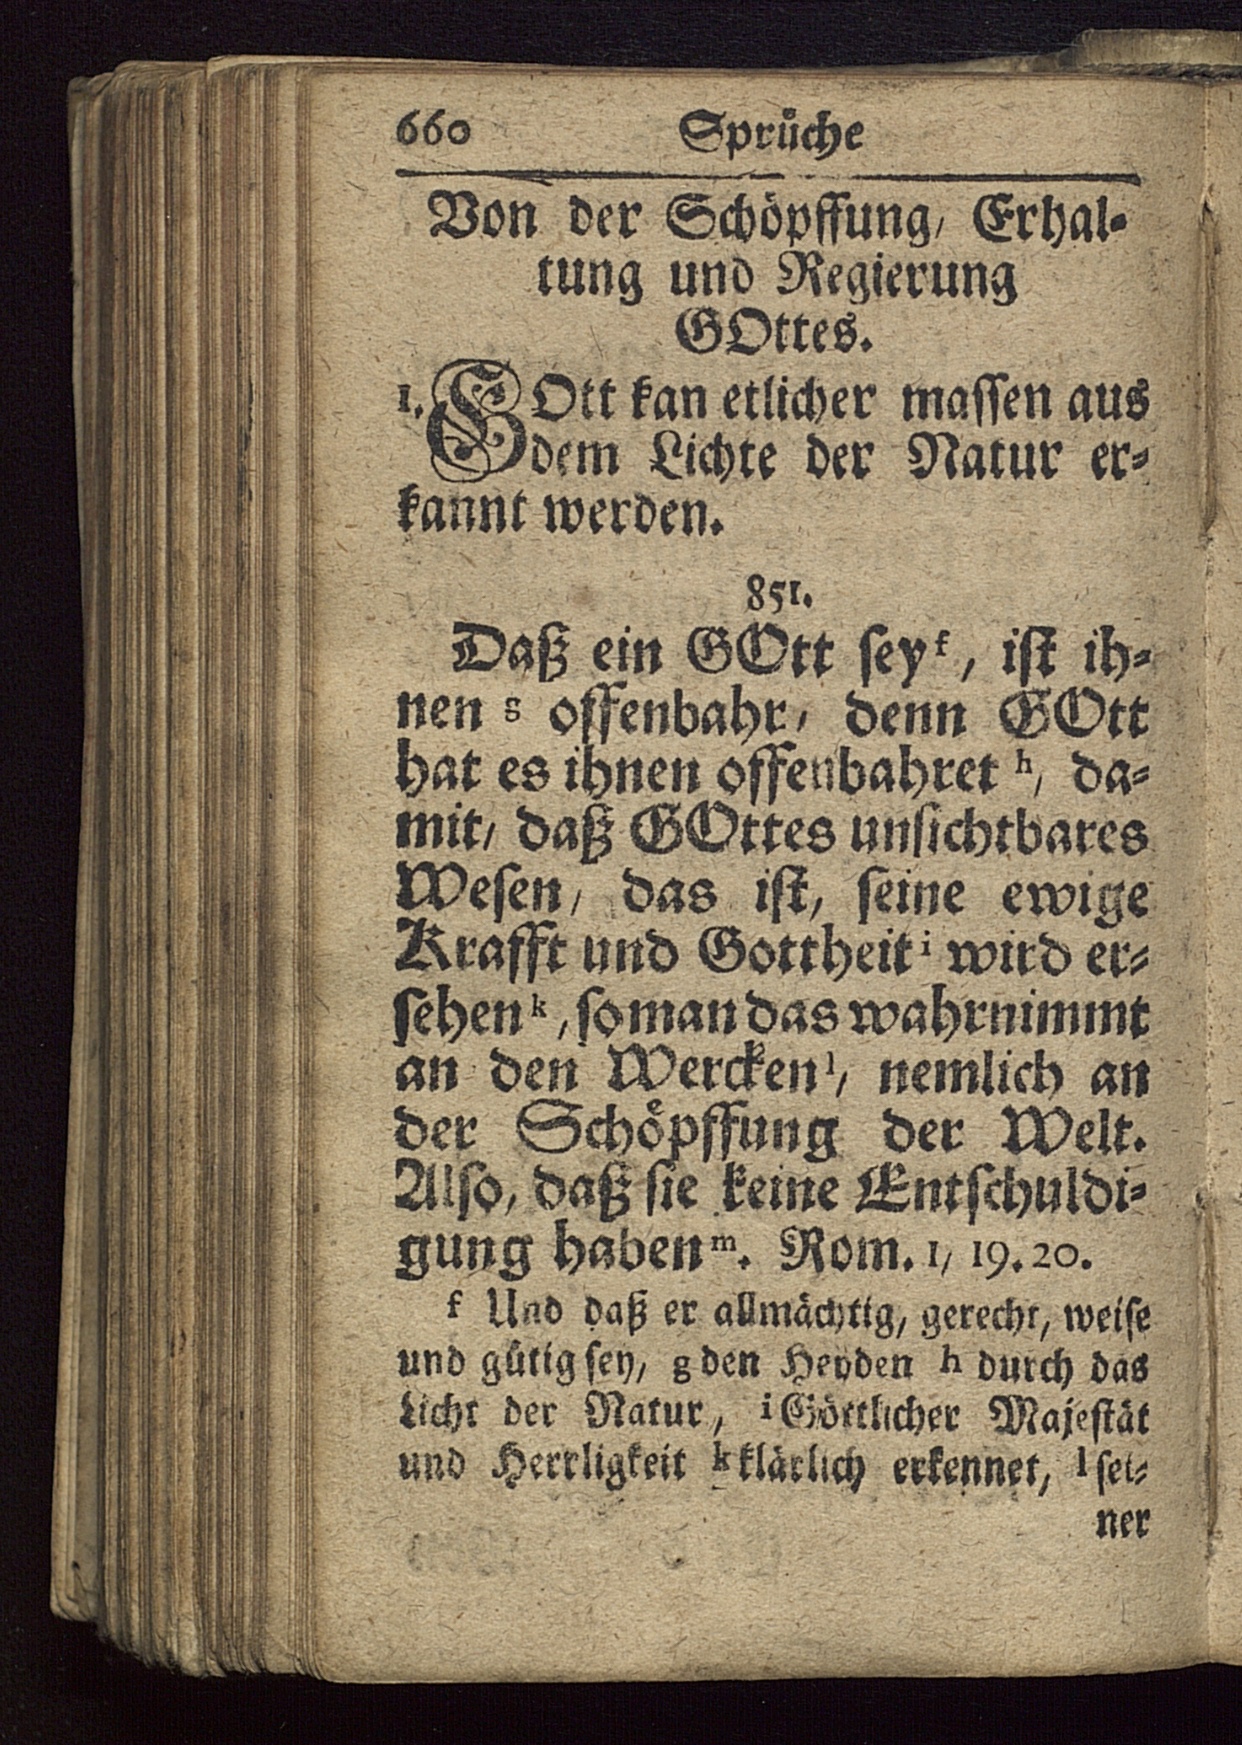 660 Sprüche
Von der Schöpffung, Erhal-
tung und Regierung
GOttes.
1. GOtt kan etlicher massen aus
dem Lichte der Natur er-
kannt werden.
851.
Daß ein GOtt sey f, ist ih-
nen g offenbahr, denn GOtt
hat es ihnen offenbahret h, da-
mit, daß GOttes unsichtbares
Wesen, das ist, seine ewige
Krafft und Gottheit i wird er-
sehen k, so man das wahrnimmt
an den Wercken l, nemlich an
der Schöpffung der Welt.
Also, daß sie keine Entschuldi-
gung haben m. Rom. 1, 19. 20.
f Und daß er allmächtig, gerecht, weise
und gütig sey, g den Heyden h durch das
Licht der Natur, i Göttlicher Majestät
und Herrligkeit k klärlich erkennet, l sei-
ner